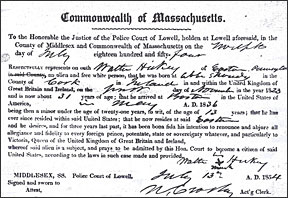 Commonwealth of Massachusetts.
To the Honorable the Justice of the Police Court of Lowell, holden at Lowell aforesaid, in the
County of Middlesex and Commonwealth of Massachusetts on the
day of July eighteen hundred and fifty four
Respectfully represents our said Walter Hickey of Easton Pennsylvania
in said County, an alien and free white person, that he was born at
Cork in Ireland and within the United Kingdom of
Great Britain and Ireland, on the first day of November in the year 1823
and is now about 31 years of age; that he arrived at Boston in the United States of
America, in May A. D. 1836
being then a minor under the age of twenty-one years, to wit, of the age of 13 years; that he has ever
since resided within said United States; that he now resides at said Easton
and he desires, and for three years last past, it has been bona fide his intention to renounce and abjure all
allegiance and fidelity to every foreign prince, potentate, state or sovereignty whatever, and particularly to
Victoria, Queen of the United Kingdom of Great Britain and Ireland,
whereof said alien is a subject, and prays to be admitted by this Hon. Court to become a citizen of said
United States, according to the laws in such case made and provided.
Walter Hickey
MIDDLESEX, SS. Police Court of Lowell, July 13th A. D. 1854
Signed and sworn to
Attest, Act'g Clerk.